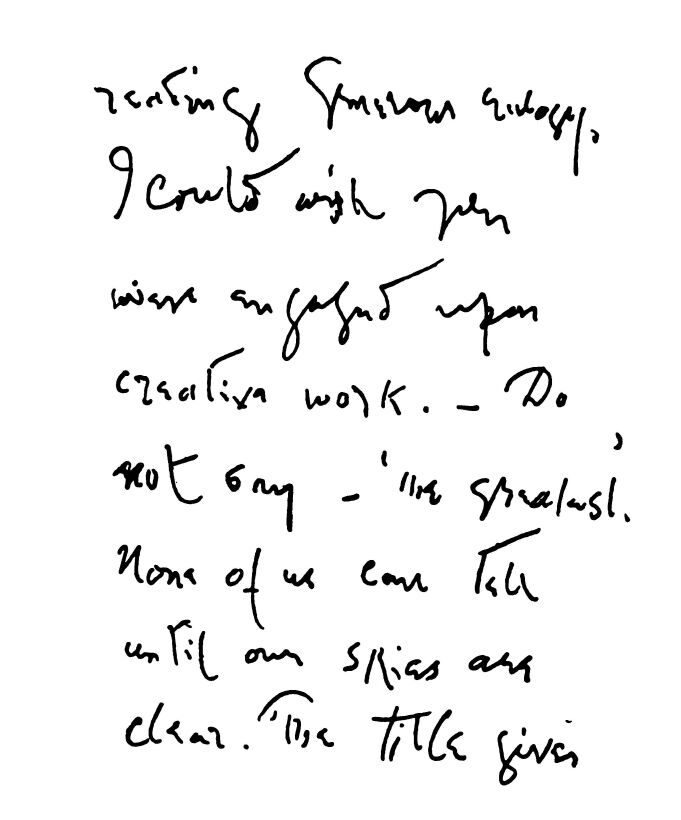 reading generous eulogy,
I could wish you
were engaged upon
creative work. – Do
not say – 'the greatest'.
None of us can tell
until our skies are
clear. The title gives